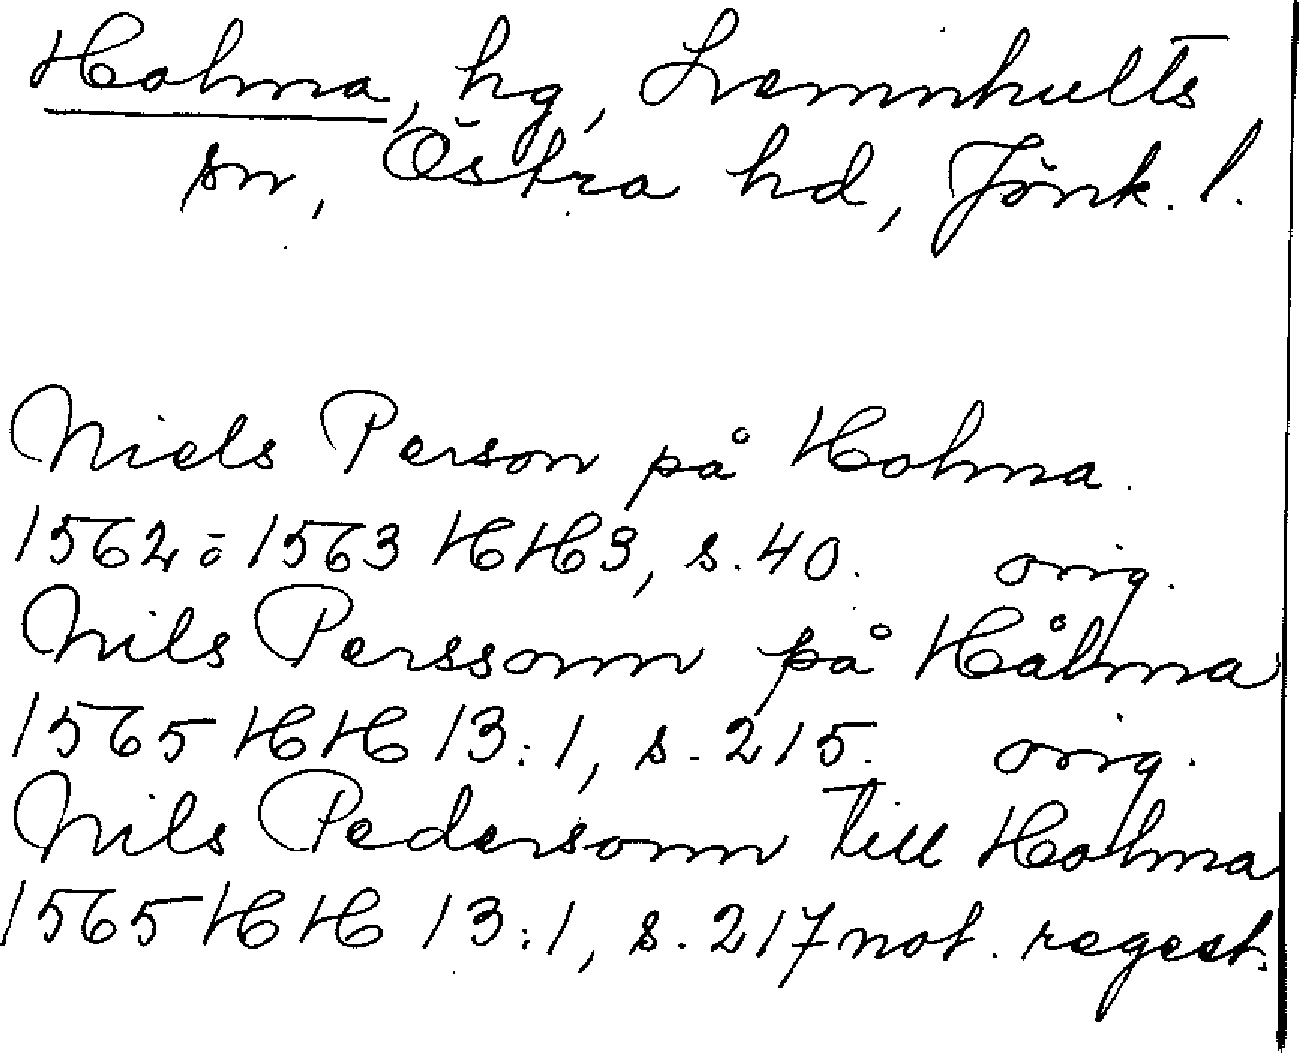 Holma, hg, Lemnhults
sn, Östra hd, Jönk. l.
Niels Person på Holma.
1562 o 1563 HH3, s. 40. orig.
Nils Perssonn på Hålma
1565 HH 13:1, s. 215. orig.
Nils Pedersonn till Holma
1565 HH 13:1, s. 217 not. regest.